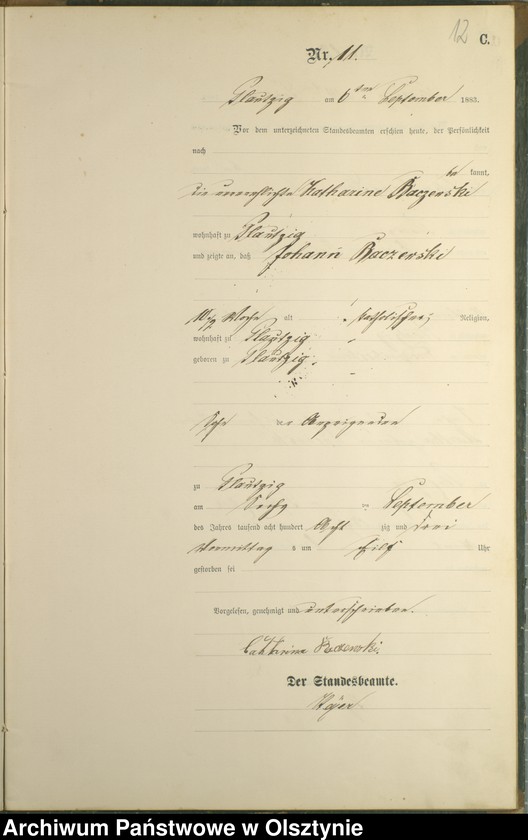 12
C.
Nr. 11.
Plautzig am 6ten September 1883.
Vor dem unterzeichneten Standesbeamten erschien heute, der Persönlichkeit
nach
be kannt,
die unverehelichte Katharine Baczewski
wohnhaft zu Plautzig
und zeigte an, daß Johann Baczewski
Woche alt katholischer Religion,
wohnhaft zu Plautzig
geboren zu Plautzig,
Sohn der Anzeigenden
zu Plautzig
am Sechs ten September
des Jahres tausend acht hundert Acht zig und drei
Vormittag s um Eilf Uhr
gestorben sei
Vorgelesen, genehmigt und unterschrieben.
Catherina Baczewski.
Der Standesbeamte.
Archiwum Państwowe w Olsztynie